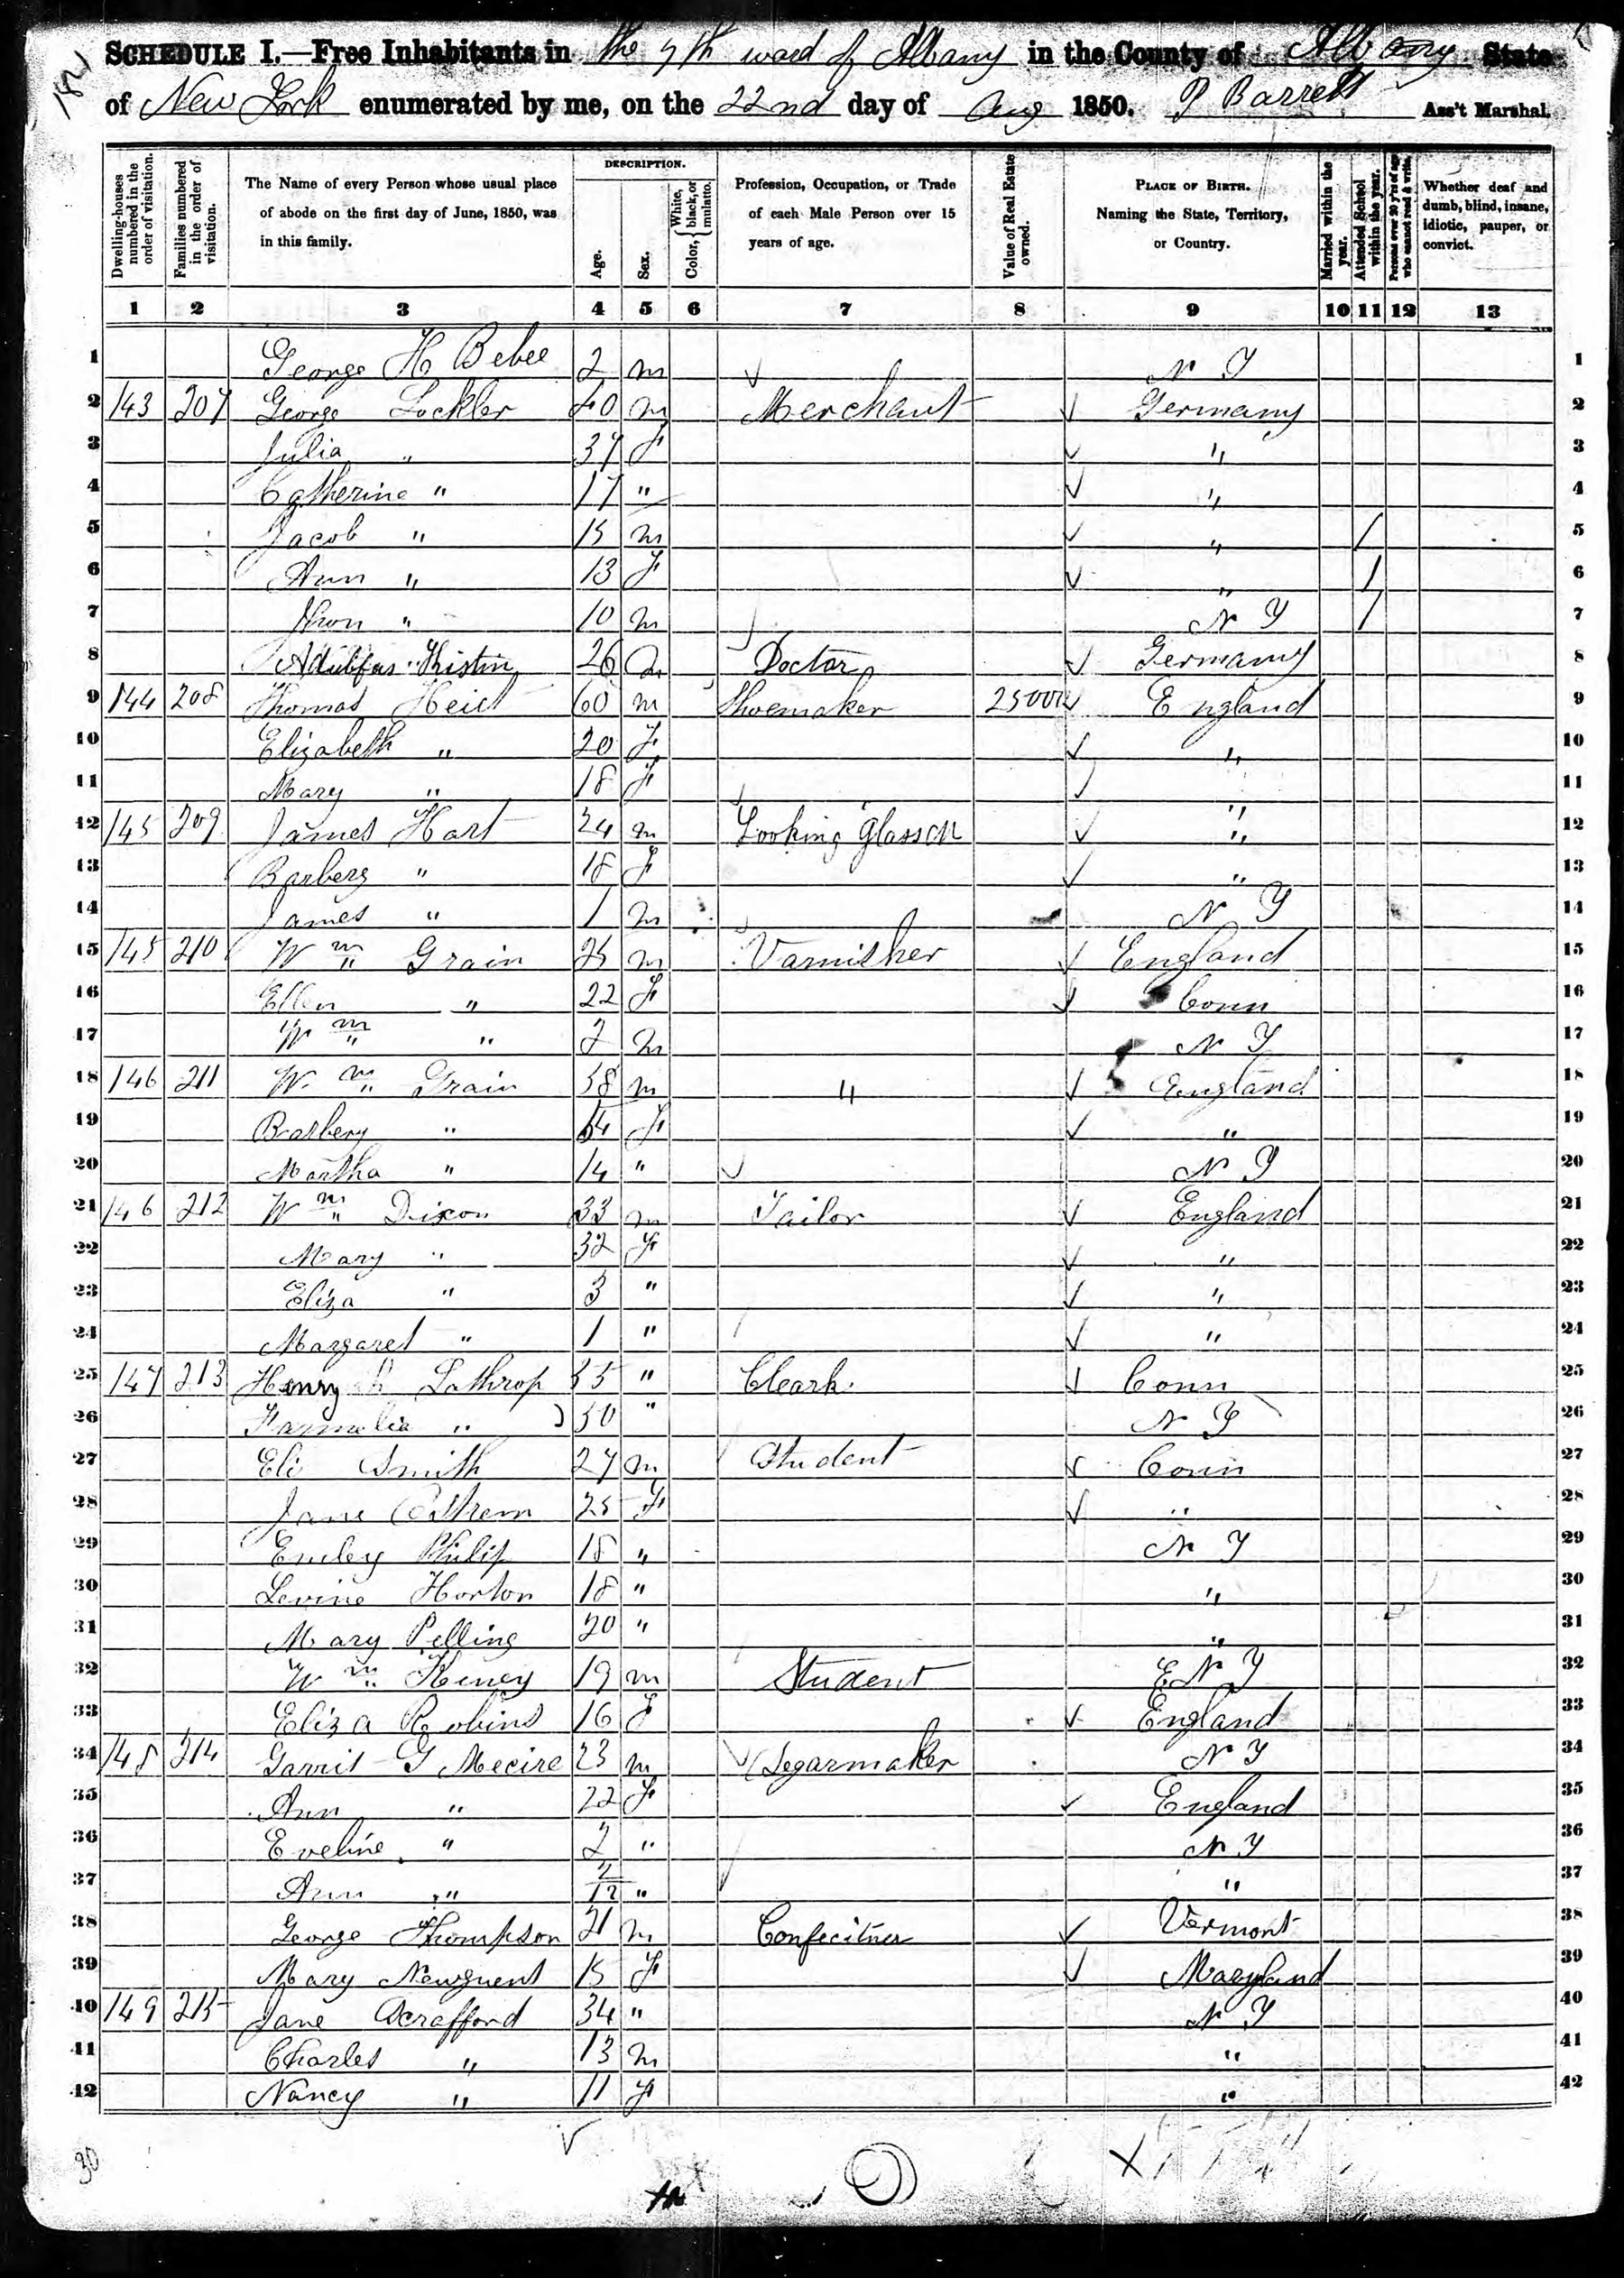 SCHEDULE I.—Free Inhabitants in the 7th ward of Albany in the County of Albany State
of New York enumerated by me, on the 22nd day of Aug 1850. P Barrett Ass't Marshal.
Dwelling-houses numbered in the order of visitation.
Families numbered in the order of visitation.
The Name of every Person whose usual place of abode on the first day of June, 1850, was in this family.
DESCRIPTION.
Age.
Sex.
Color, { White, black, or mulatto.
Profession, Occupation, or Trade of each Male Person over 15 years of age.
Value of Real Estate owned.
PLACE OF BIRTH. Naming the State, Territory, or Country.
Married within the year.
Attended School within the year.
Persons over 20 y'rs of age who cannot read & write.
Whether deaf and dumb, blind, insane, idiotic, pauper, or convict.
1 2 3 4 5 6 7 8 9 10 11 12 13
1 George H Bebee 2 m N Y 1
2 143 207 George Lockler 40 m Merchant Germany 2
3 Julia " 37 F " 3
4 Catherine " 17 " " 4
5 Jacob " 15 m " / 5
6 Ann " 13 F " / 6
7 " 10 m N Y / 7
8 26 m Doctor Germany 8
9 144 208 Thomas 60 m Shoemaker England 9
10 Elizabeth " 20 F " 10
11 Mary " 18 F " 11
12 145 209 James Hart 24 m Looking Glass " 12
13 Barbery " 18 F " 13
14 James " 1 m N Y 14
15 145 210 Wm Grain 25 m Varnisher England 15
16 Ellen " 22 F Conn 16
17 Wm " 2 m N Y 17
18 146 211 Wm Grain 58 m " England 18
19 Barbery " 54 F " 19
20 Martha " 14 " N Y 20
21 146 212 Wm Dixon 33 m Tailor England 21
22 Mary " 32 F " 22
23 Eliza " 3 " " 23
24 Margaret " 1 " " 24
25 147 213 Henry Lathrop 35 " Cleark Conn 25
26 " 30 " N Y 26
27 Eli Smith 27 m Student Conn 27
28 Jane 25 F " 28
29 Emley Philip 18 " N Y 29
30 Levine Horton 18 " " 30
31 Mary Pelling 20 " " 31
32 Wm Keney 19 m Student N Y 32
33 Eliza Robins 16 F England 33
34 148 214 Garrit G Mecire 23 m Segarmaker N Y 34
35 Ann " 22 F England 35
36 Eveline " 2 " N Y 36
37 Ann " 2/12 " " 37
38 George Thompson 21 m Confecitner Vermont 38
39 Mary Newguent 15 F Maryland 39
40 149 215 Jane Scrafford 34 " N Y 40
41 Charles " 13 m " 41
42 Nancy " 11 F " 42